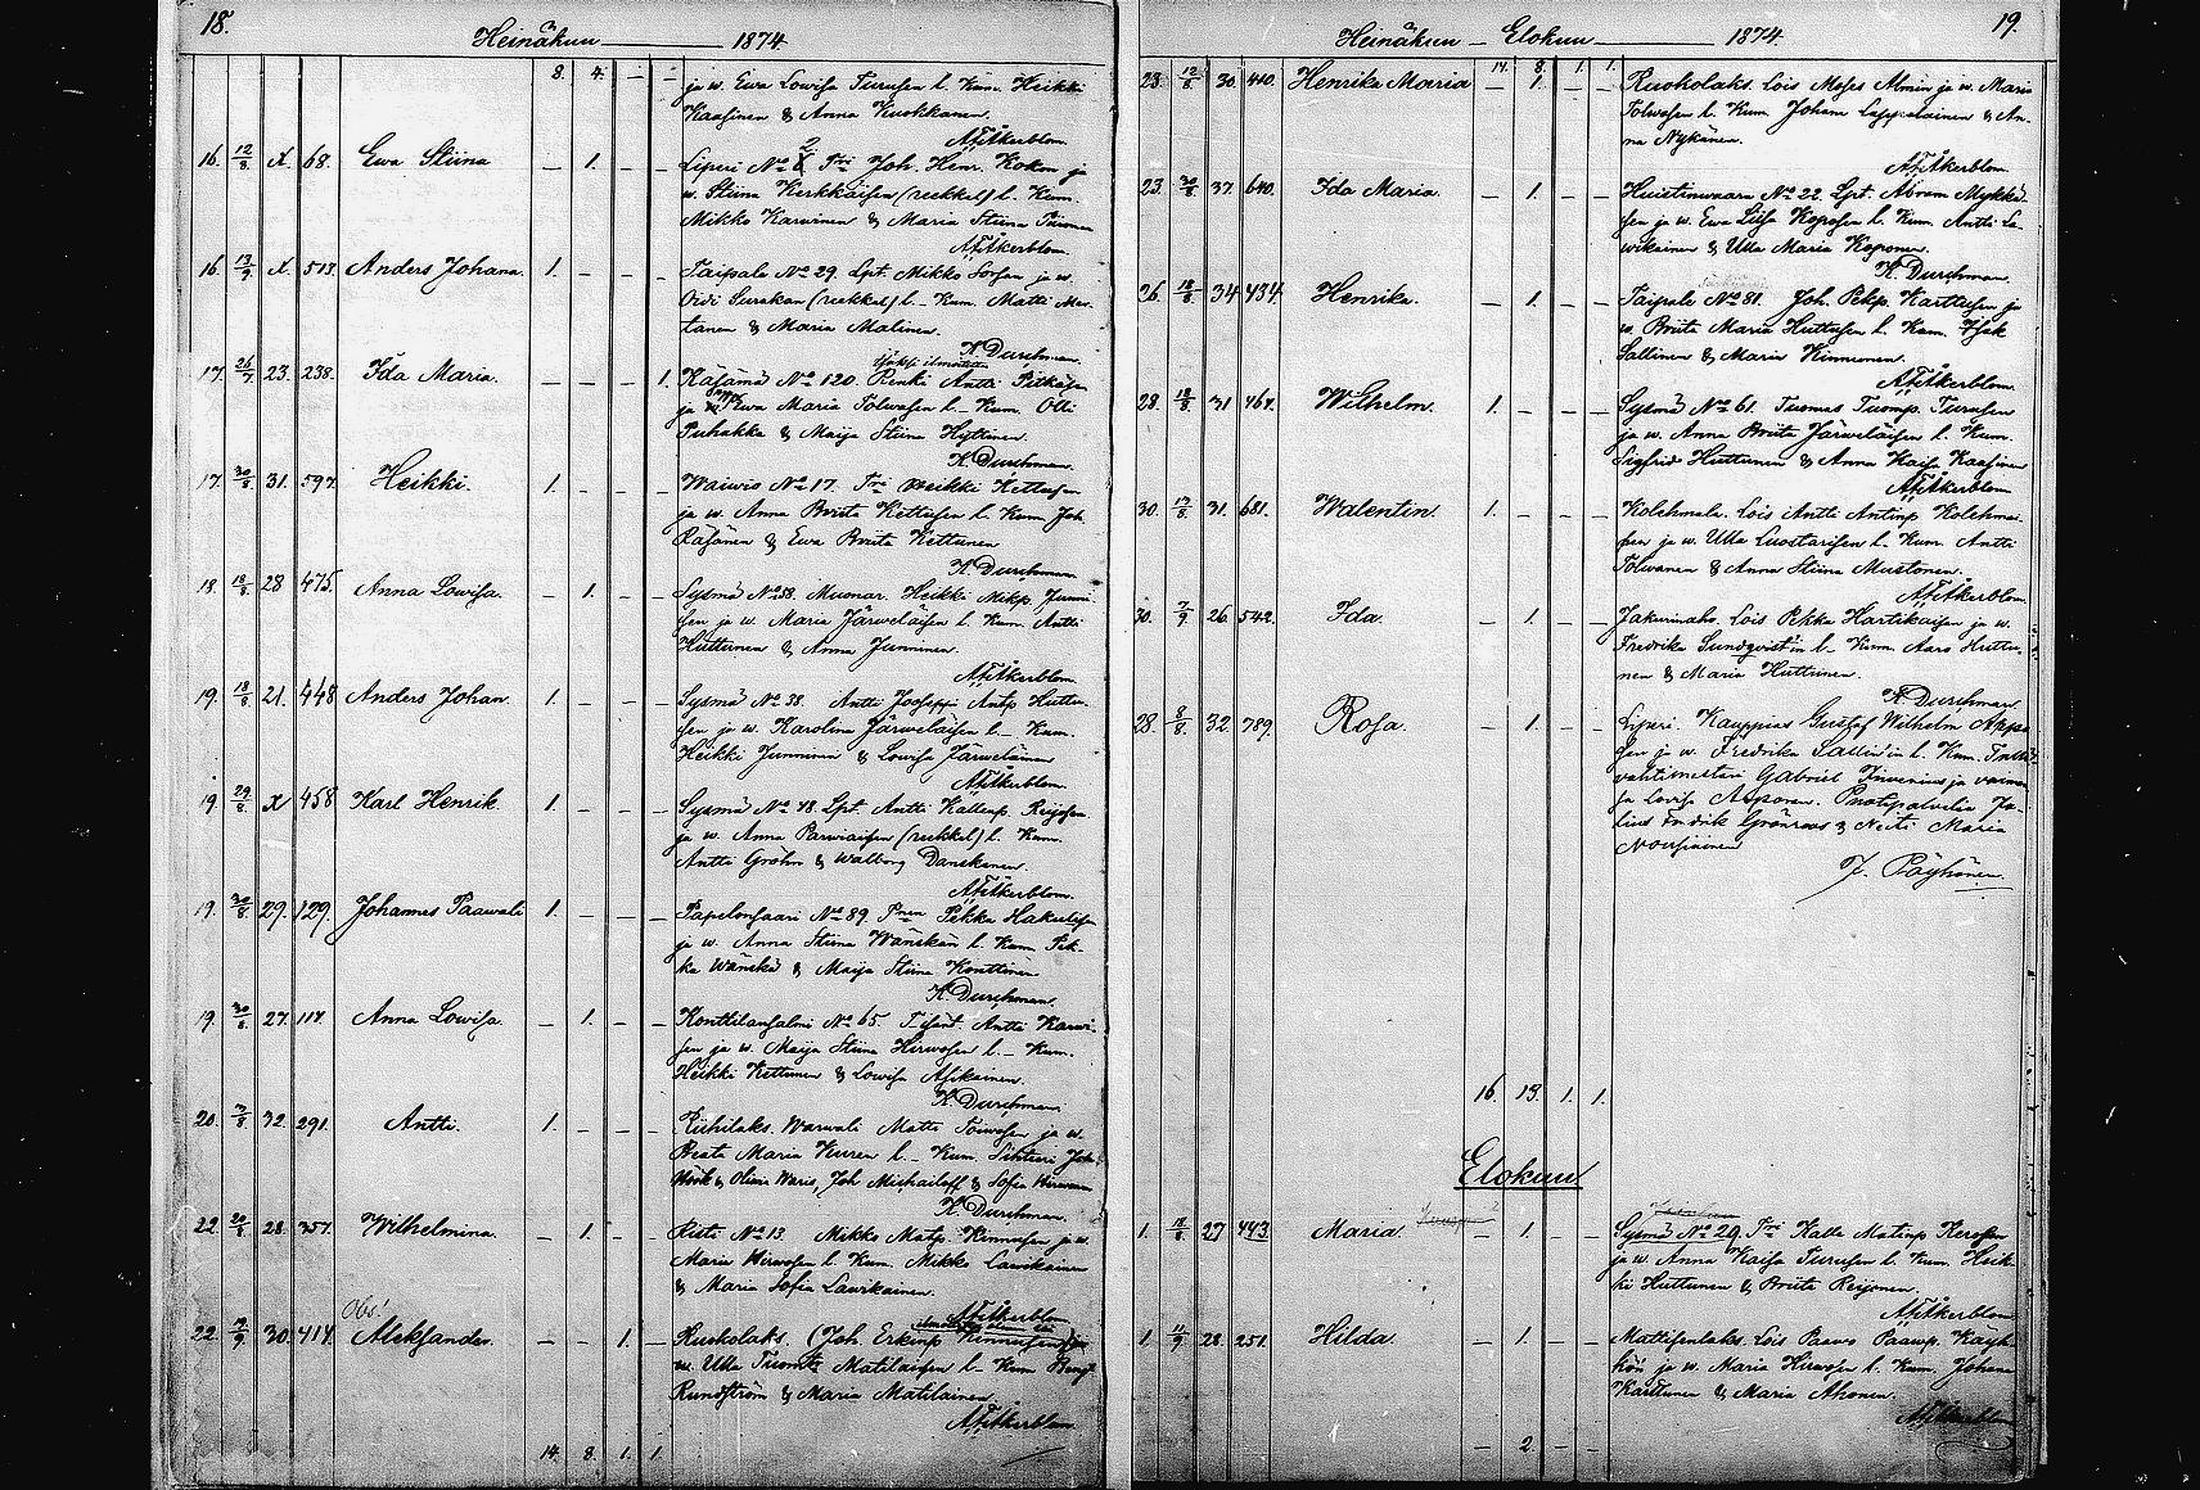 18.
Heinäkuu 1874
8. 4. — —
ja w. Ewa Lowisa Turusen l. Kum. Heikki
Kaasinen & Anna Kuokkanen.
A.F. Åkerblom.
16. 12/8 X. 68. Ewa Stiina — 1. — — Liperi No 2 Tri Joh. Henr. Kokon ja
w. Stiina Kerkkäisen (reekkel) l. Kum.
Mikko Karwinen & Maria Stiina Turonen
A.F. Åkerblom.
16. 13/9 X. 513. Anders Johana. 1. — — — Taipale No 29. Lpt. Mikko Sorsan ja w.
Oidi Surakan (reekkel) l. Kum. Matti Mar-
tanen & Maria Malinen.
K. Durchman.
17. 26/7 23. 238. Ida Maria. — — — 1. Käsämä No 120. Renki Antti Pitkäsen
ja Ewa Maria Tolwasen l. Kum. Olli
Puhakka & Maija Stiina Hyttinen.
K. Durchman.
17. 30/8 31. 597. Heikki. 1. — — — Waiwio No 17. Tri Heikki Kettusen
ja w. Anna Briita Kettusen l. Kum. Joh.
Räsänen & Ewa Briita Kettunen
K. Durchman.
18. 18/8 28 475. Anna Lowisa. — 1. — — Sysmä No 58. Muonar. Heikki Mikp. Junni-
sen ja w. Maria Järweläisen l. Kum. Antti
Huttunen & Anna Junninen.
A.F. Åkerblom.
19. 18/8 21. 448 Anders Johan. 1. — — — Sysmä No 38. Antti Jooseppi Antp. Huttu-
sen ja w. Karolina Järweläisen l. Kum.
Heikki Junninen & Lowisa Järweläinen
A.F. Åkerblom.
19. 29/8 X 458 Karl Henrik. 1. — — — Sysmä No 48. Lpt. Antti Kallenp. Reijosen
ja w. Anna Parwiaisen (reekkel) l. Kum.
Antti Gröhn & Walborg Danskanen.
A.F. Åkerblom.
19. 30/8 29. 129. Johannes Paawali 1. — — — Papelonsaari No 89. Pnen Pekka Hakulisen
ja w. Anna Stiina Wänskän l. Kum. Pek-
ka Wänskä & Maija Stiina Konttinen
K. Durchman.
19. 30/8 27. 117. Anna Lowisa. — 1. — — Konttilansalmi No 65. Antti Karwi-
sen ja w. Maija Stiina Hirwosen l. Kum.
Heikki Kettunen & Lowisa Asikainen.
K. Durchman.
20. 3/8 32. 291. Antti. 1. — — — Riihilaks. Warwali Matti Toiwosen ja w.
Beata Maria Kuren l. Kum. Joh.
Höök & Olivia Waris, Joh Michailoff & Sofia Hirwonen
K. Durchman.
22. 20/8 28. 357. Wilhelmina. — 1. — — Risti No 13. Mikko Matp. Kinnusen ja w.
Maria Hirwosen l. Kum. Mikko Lawikainen
& Maria Sofia Lawikainen.
A.F. Åkerblom
Obs!
22. 19/9 30. 417. Aleksander. — — 1. — Ruokolaks. (Joh Erkinp Kinnusen) ja
w. Ulla Matilaisen l. Kum Bengt
Rundström & Maria Matilainen.
A.F. Åkerblom.
14. 8. 1. 1.
19.
Heinäkuu — Elokuu 1874.
14. 8. 1. 1.
23. 12/8 30. 410. Henrika Maria — 1. — — Ruokolaks. Lois Moses Almin ja w. Maria
Tolwasen l. Kum. Johan Lappalainen & An-
na Nykänen.
A.F. Åkerblom.
23. 30/8 37. 640. Ida Maria. — 1. — — Huistinwaara No 22. Lpt. Abram Mykkä-
sen ja w. Ewa Liisa Koposen l. Kum. Antti La-
wikainen & Ulla Maria Koponen.
K. Durchman.
26. 18/8 34 434. Henrika. — 1. — — Taipale No 81. Joh. Pekp. Karttusen ja
w. Briita Maria Huttusen l. Kum. Isak
Sallinen & Maria Kinnunen.
A.F. Åkerblom.
28. 18/8 31 467. Wilhelm. 1. — — — Sysmä No 61. Tuomas Tuomp. Turusen
ja w. Anna Briita Järweläisen l. Kum.
Sigfrid Huttunen & Anna Kaisa Kaasinen
A.F. Åkerblom
30. 17/8 31. 681. Walentin. 1. — — — Kolehmala. Lois Antti Antinp Kolehmai-
sen ja w. Ulla Luostarisen l. Kum. Antti
Tolwanen & Anna Stiina Mustonen.
A.F. Åkerblom.
30. 7/9 26. 542. Ida. — 1. — — Jakurinaho. Lois Pekka Hartikaisen ja w.
Fredrika Sundqvist'in l. Kum. Aaro Huttu-
nen & Maria Huttunen.
K. Durchman
28. 8/8 32. 789. Rosa. — 1. — — Liperi. Kauppias Gustaf Wilhelm Appo-
sen ja w. Fredrika Sallin'in l. Kum. Tulli-
vahtimestari Gabriel Invenius ja vaimon-
sa Lovisa Asponen. Puotipalvelia Ju-
lius Fredrik Grönroos & Neiti Maria
Nousiainen
J. Päyhönen.
16. 13. 1. 1.
Elokuu
1. 18/8 27 443. Maria. — 1. — — Sysmä No 29. Tri Kalle Matinp Kerosen
ja w. Anna Kaisa Turusen l. Kum. Heik-
ki Huttunen & Briita Reijonen.
A.F. Åkerblom
1. 11/9 28. 251. Hilda. — 1. — — Mattisenlaks. Lois Paavo Paawp. Käyh-
kön ja w. Maria Hirwosen l. Kum. Johan
Karttunen & Maria Ahonen.
A.F. Åkerblom
— 2. — —